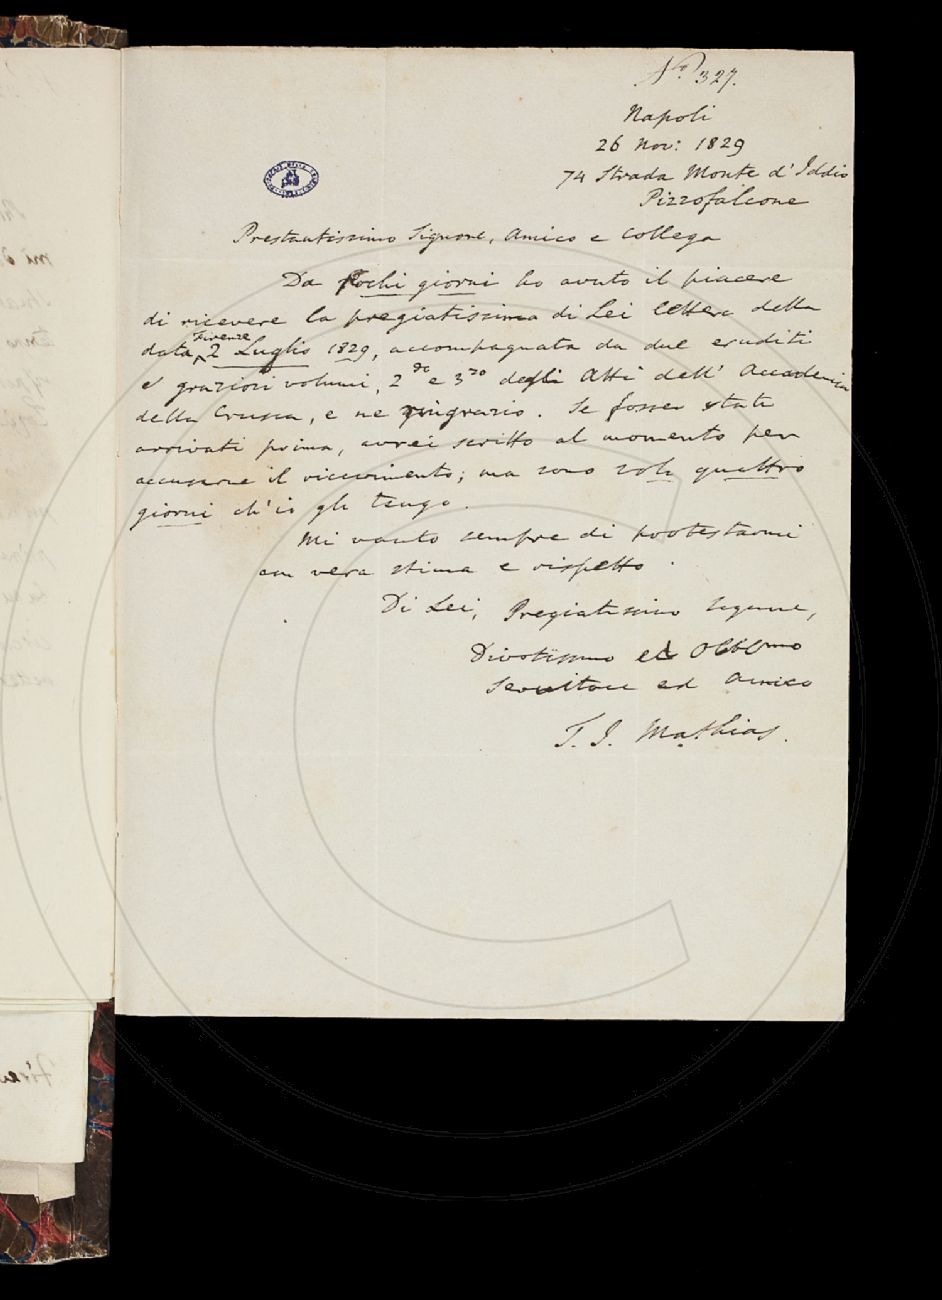 N.o 327.
Napoli
26 Nov: 1829
74 Strada Monte d'Iddio
Pizzofalcone
Prestantissimo Signore, Amico e Collega
Da pochi giorni ho avuto il piacere
di ricevere la pregiatissima di Lei lettera della
data Firenze 2 Luglio 1829, accompagnata da due eruditi
e graziosi volumi, 2do e 3zo degli Atti dell' Accademia
della Crusca, e ne ringrazio. Se fosser stati
arrivati prima, avrei scritto al momento per
accusarne il ricevimento; ma sono soli quattro
giorni ch'io gli tengo.
Mi vanto sempre di protestarmi
con vera stima e rispetto.
Di Lei, Pregiatissimo Signore,
Divotissimo ed Obblmo
Servitore ed Amico
T. J. Mathias.